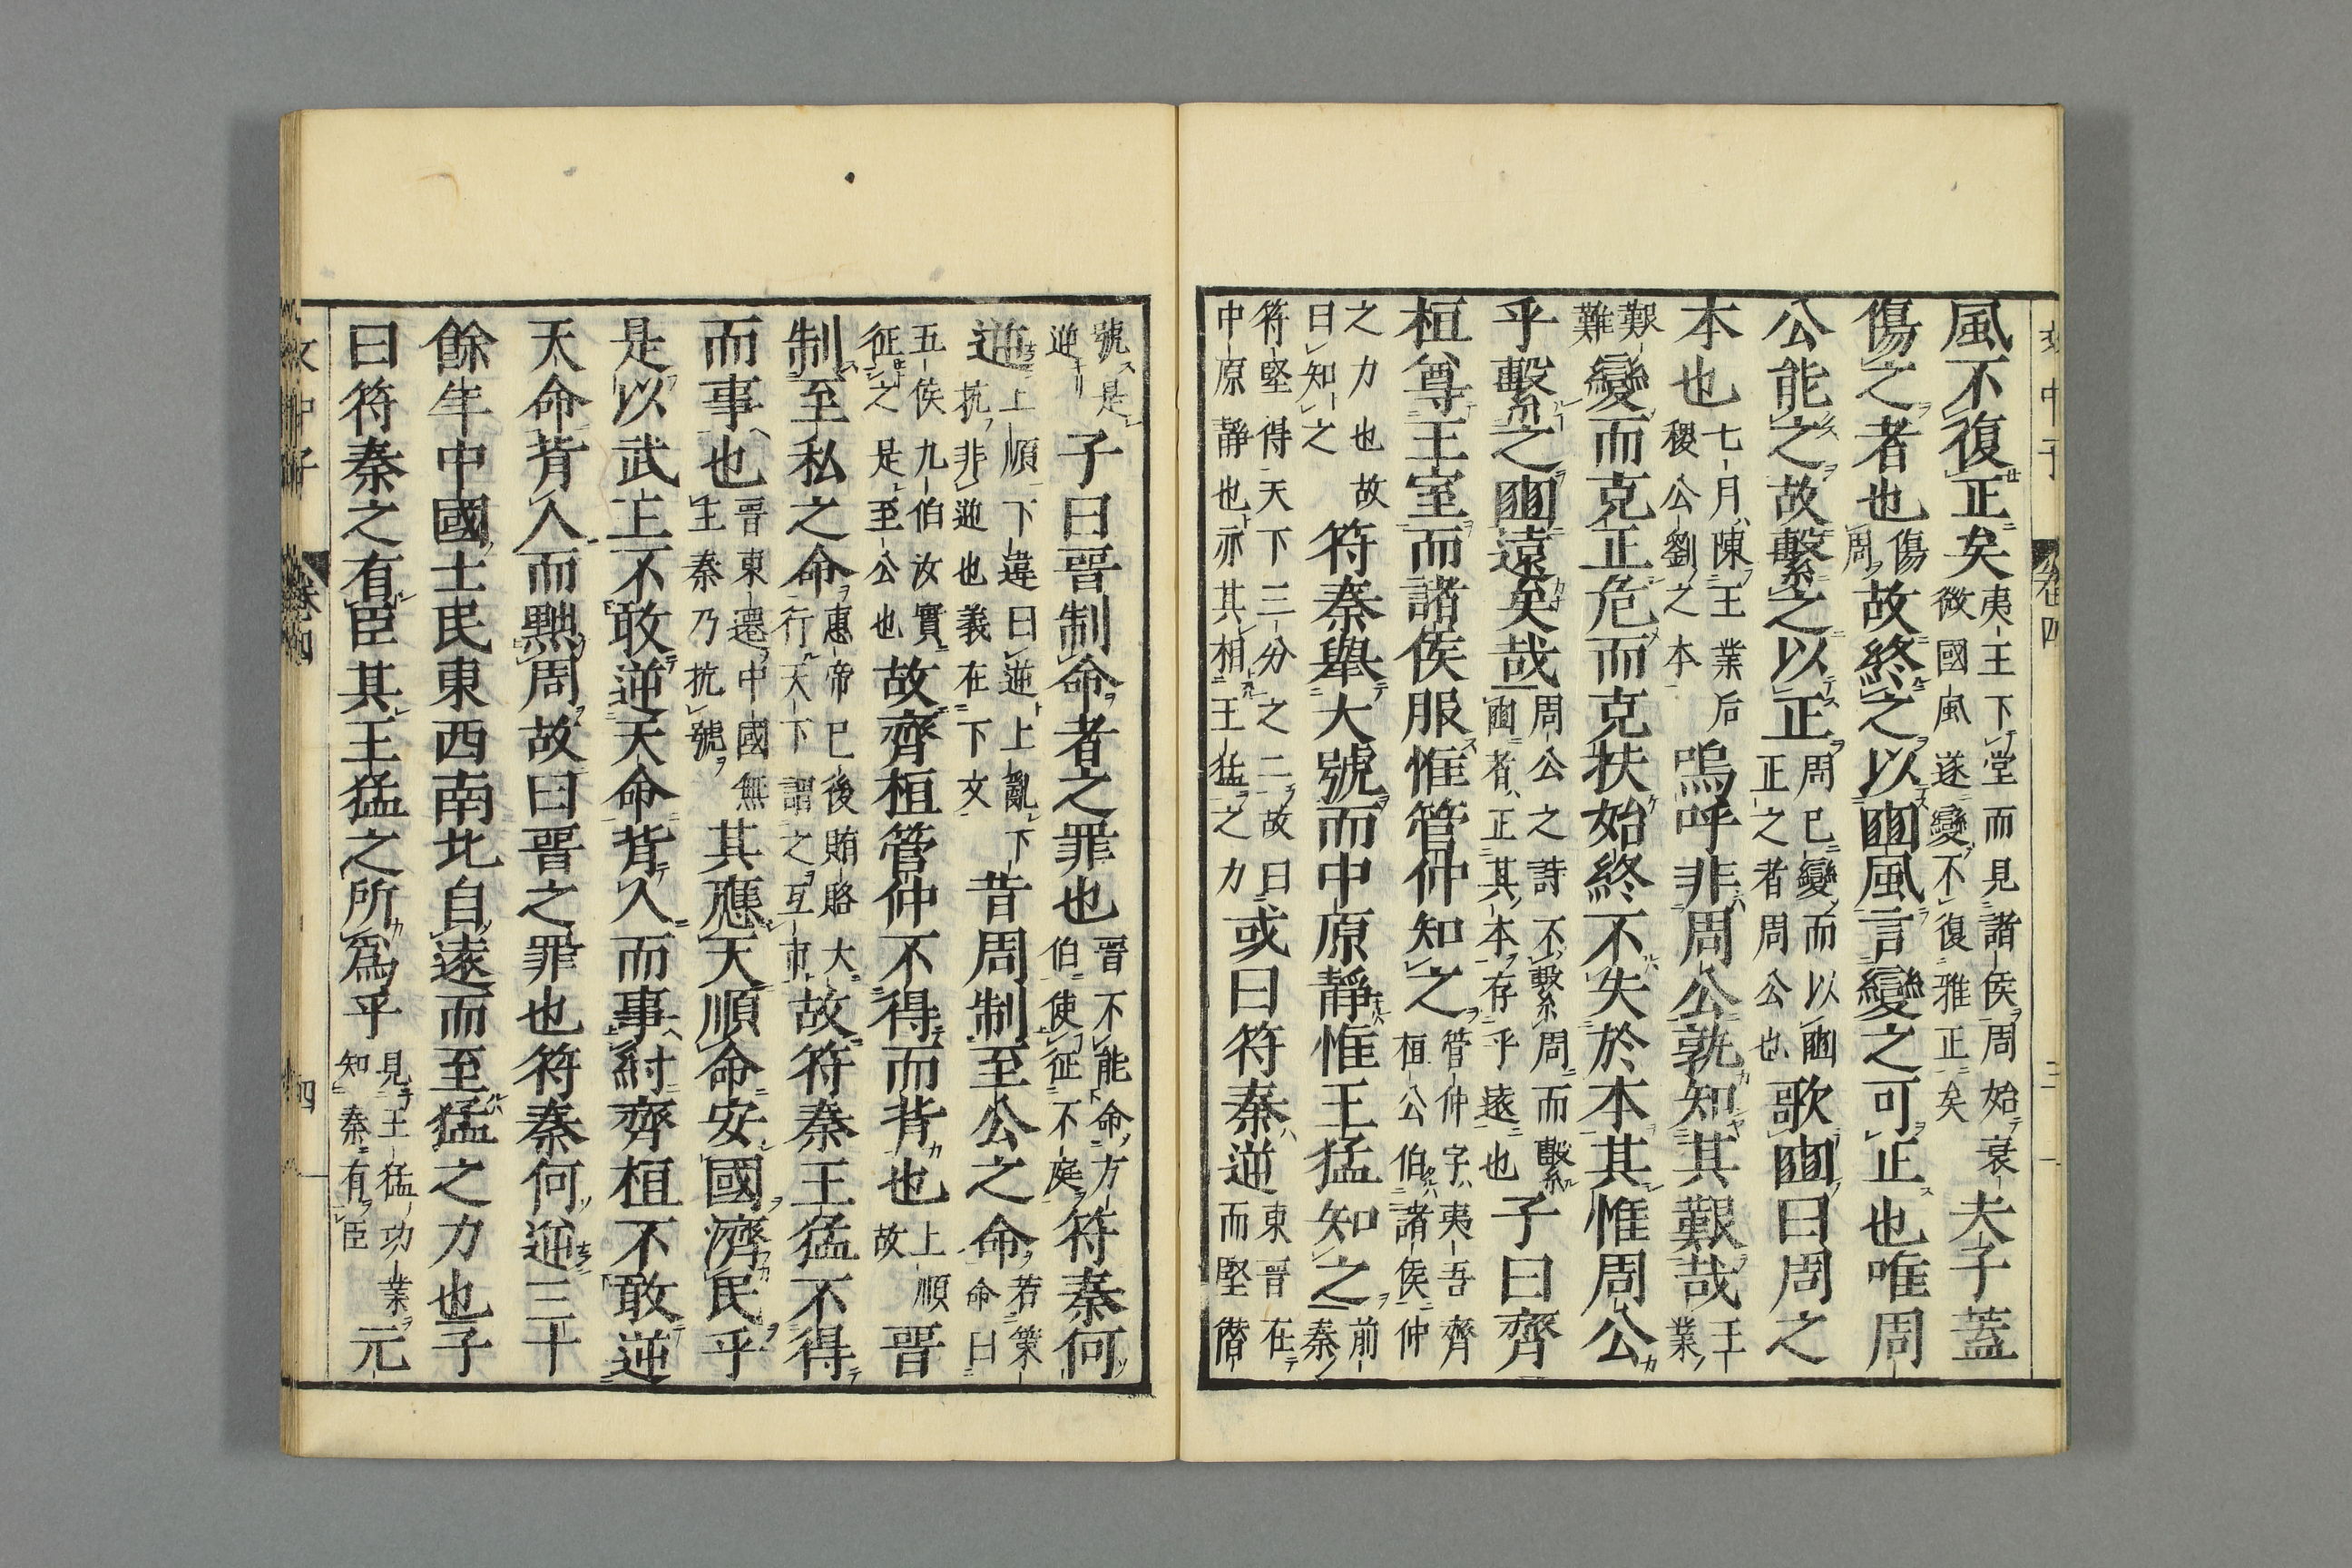 文中子 卷四 三
風不復正矣夷王下堂而見諸侯周始衰微國風遂變不復雅正矣夫子蓋
傷之者也傷周故終之以豳風言變之可正也唯周
公能之故繫之以正周已變而以豳正之者周公也歌豳曰周之
本也七月陳王業后稷公劉之本嗚呼非周公孰知其艱哉王業
艱難變而克正危而克扶始終不失於本其惟周公
乎繫之豳遠矣哉周公之詩不繫周而繫豳者正其本存乎遠也子曰齊
桓尊王室而諸侯服惟管仲知之管仲字夷吾齊桓公伯諸侯仲
之力也故曰知之符秦舉大號而中原靜惟王猛知之前秦
符堅得天下三分之二故曰中原靜也亦其相王猛之力或曰符秦逆東晋在而堅僭
號是逆子曰晋制命者之罪也晋不能命方伯使征不庭符秦何
逆上順下違曰逆上亂下抗非逆也義在下文昔周制至公之命若策命曰
五侯九伯汝實征之是至公也故齊桓管仲不得而背也上順故晋
制至私之命惠帝已後賄賂大行天下謂之互市故符秦王猛不得
而事也晋東遷中國無主秦乃抗號其應天順命安國濟民乎
是以武王不敢逆天命背人而事紂齊桓不敢逆
天命背人而黜周故曰晋之罪也符秦何逆三十
餘年中國士民東西南北自遠而至猛之力也子
曰符秦之有臣其王猛之所爲乎見王猛功業知秦有臣元
文中子 卷四 四